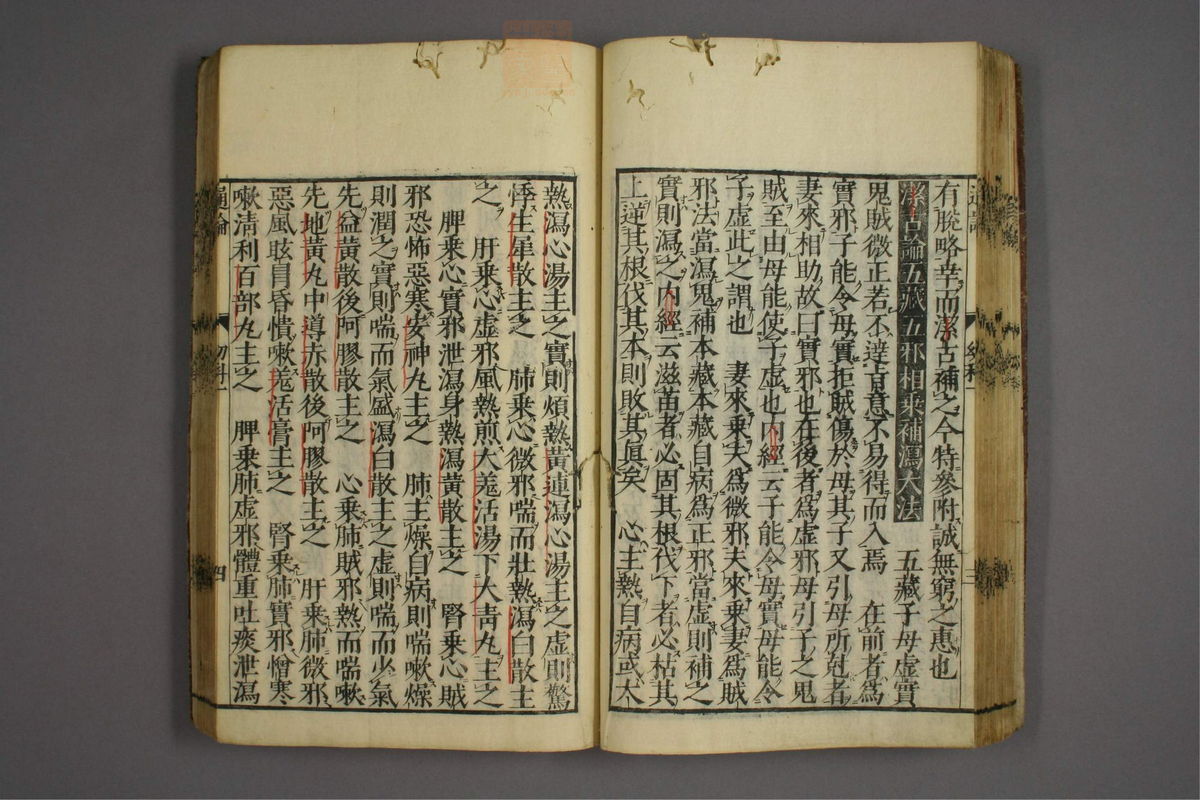 有脫略幸而潔古補之今特參附誠無窮之惠也
潔古論五藏五邪相乘補瀉大法　五藏子母虛實
鬼賊微正若不達旨意不易得而入焉　在前者爲
實邪子能令母實拒賊傷於母其子又引母所剋者
妻來相助故曰實邪也在後者爲虛邪母引子之鬼
賊至由母能使子虛也内經云子能令母實母能令
子虛此之謂也　妻來乘夫爲微邪夫來乘妻爲賊
邪法當瀉鬼補本藏本藏自病爲正邪當虛則補之
實則瀉之内經云滋苗者必固其根伐下者必枯其
上逆其根伐其本則敗其眞矣　心主熱自病或大
熱瀉心湯主之實則煩熱黃連瀉心湯主之虛則驚
悸生犀散主之　肺乘心微邪喘而壯熱瀉白散主
之　肝乘心虛邪風熱煎大羌活湯下大青丸主之
脾乘心實邪泄瀉身熱瀉黃散主之　腎乘心賊
邪恐怖惡寒安神丸主之　肺主燥自病則喘嗽燥
則潤之實則喘而氣盛瀉白散主之虛則喘而少氣
先益黃散後阿膠散主之　心乘肺賊邪熱而喘嗽
先地黃丸中導赤散後阿膠散主之　肝乘肺微邪
惡風眩冐昏憒嗽羌活膏主之　腎乘肺實邪憎寒
嗽淸利百部丸主之　脾乘肺虛邪體重吐痰泄瀉
四